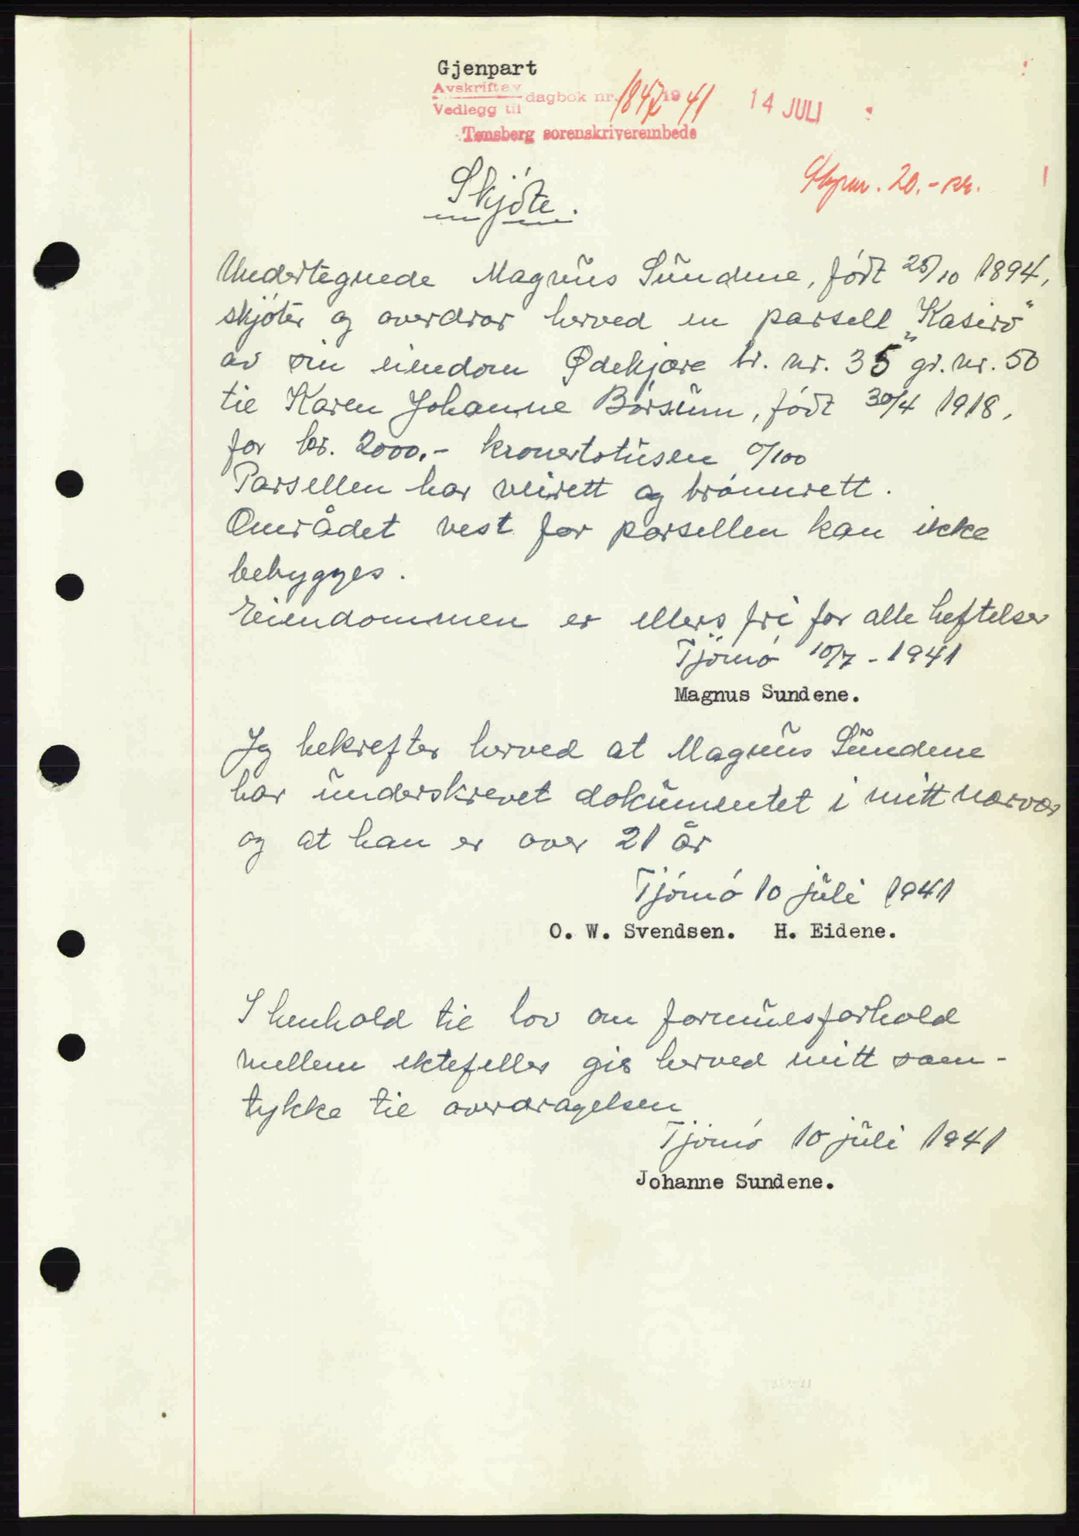 Gjenpart
Avskrift av
Vedlegg til dagbok nr. 1847 19 41 14 JULI
Tønsberg sorenskriverembede
20.- kr.
Skjöte.
Undertegnede Magnus Sundene, födt 25/10 1894,
skjöter og overdrar herved en parsell "Kasirö"
av sin eiendom Ødekjære br. nr. 35 gr. nr. 50
til Karen Johanne Börsum, födt 30/4 1918,
for kr. 2000.- kronertotusen 0/100
Parsellen har veirett og brönnrett.
Området vest for parsellen kan ikke
bebygges.
Eiendommen er ellers fri for alle heftelser
Tjömö 10/7 - 1941
Magnus Sundene.
Jg bekrefter herved at Magnus Sundene
har underskrevet dokumentet i mitt nærvær
og at han er over 21 år
Tjömö 10 juli 1941
O. W. Svendsen. H. Eidene.
I henhold til lov om formuesforhold
mellem ektefeller gis herved mitt sam-
tykke til overdragelsen
Tjömö 10 juli 1941
Johanne Sundene.